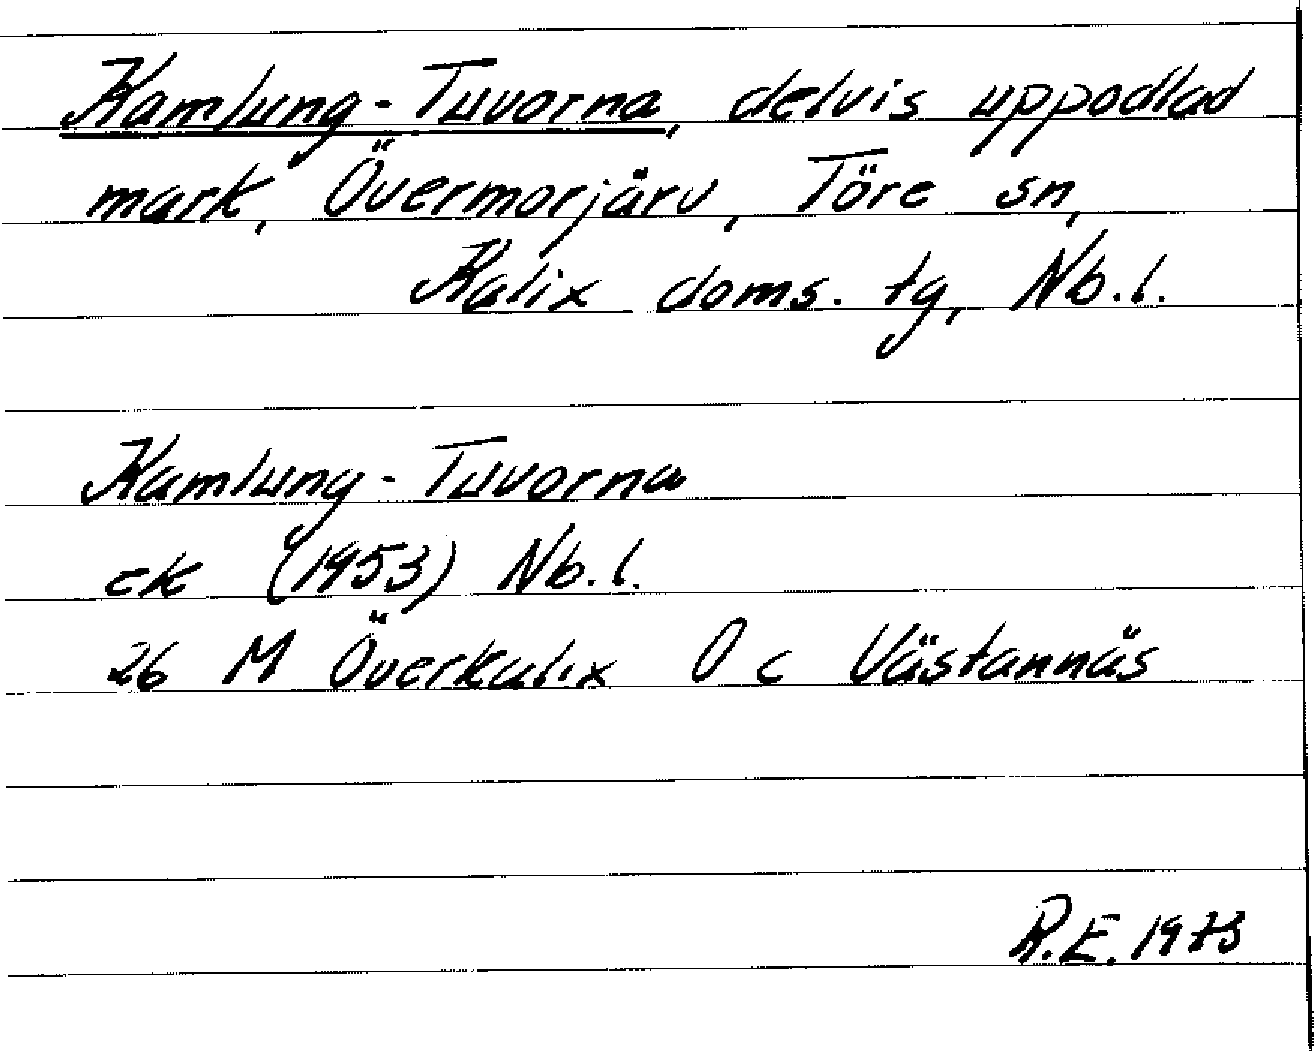 Kamlung-Tuvorna, delvis uppodlad
mark, Övermorjärv, Töre sn,
Kalix doms. tg, Nb.l.
Kamlung-Tuvorna
ek (1953) Nb.l.
26 M Överkalix O c Västannäs
R.E. 1973